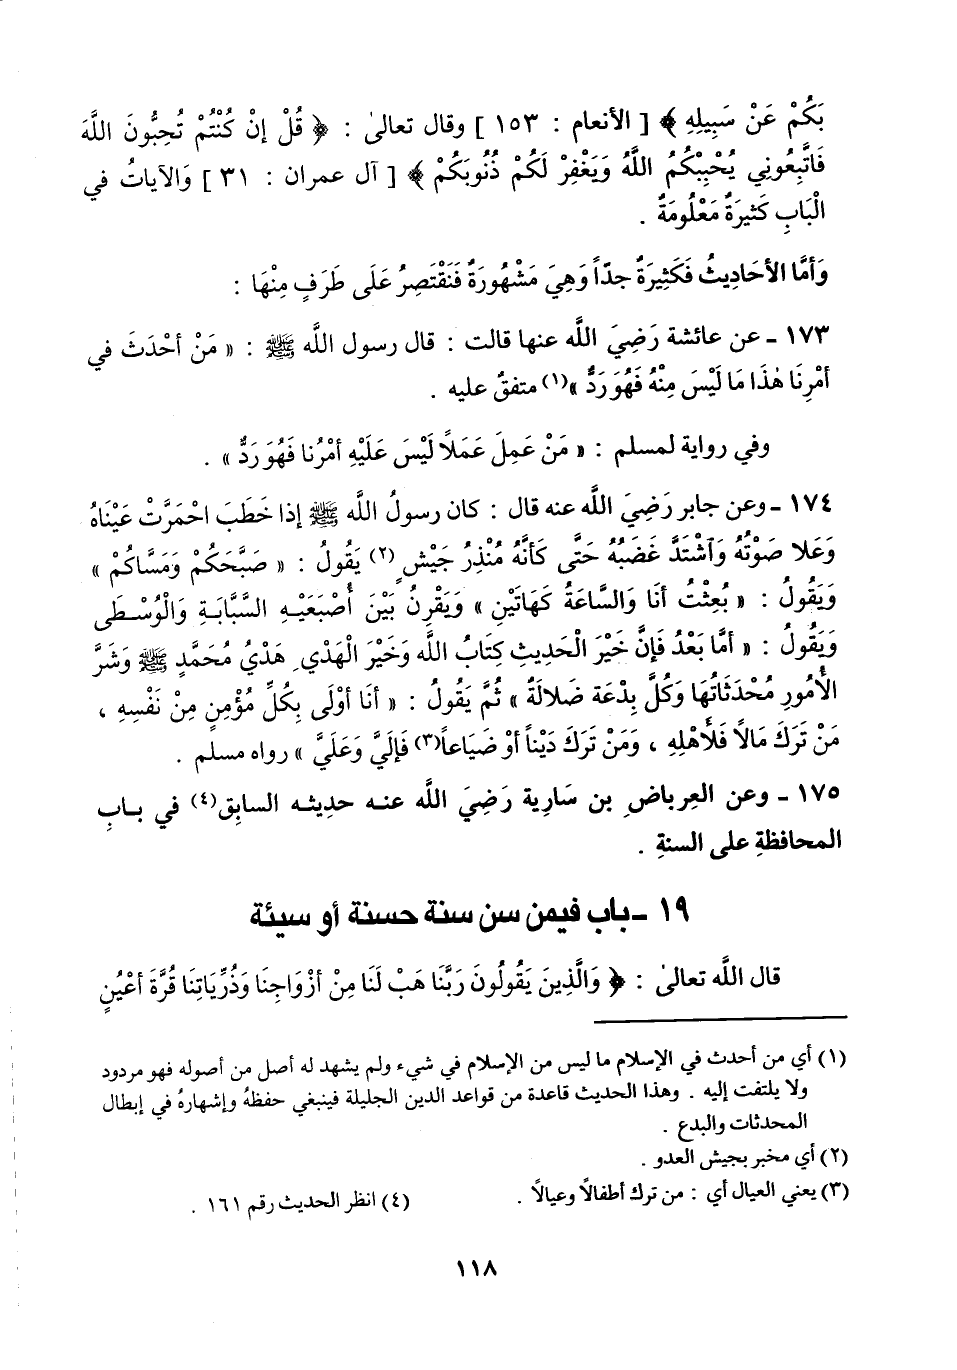 بَكُمْ عَنْ سَبِيلِهِ ﴾ [ الأنعام : ١٥٣ ] وقال تعالىٰ : ﴿ قُلْ إنْ كُنْتُمْ تُحِبُّونَ اللَّهَ
فَاتَّبِعُونِي يُحْبِبْكُمُ اللَّهُ وَيَغْفِرْ لَكُمْ ذُنُوبَكُمْ ﴾ [ آل عمران : ٣١ ] وَالآيَاتُ في
الْبَابِ كَثيرَةٌ مَعْلُومَةٌ .
وَأمَّا الأحَادِيثُ فَكَثِيرَةٌ جدّاً وَهِيَ مَشْهُورَةٌ فَنَقْتَصِرُ عَلَى طَرَفٍ مِنْهَا :
١٧٣ ـ عن عائشة رَضِيَ اللَّه عنها قالت : قال رسول اللَّه ﷺ : « مَنْ أحْدَثَ في
أمْرِنَا هٰذَا مَا لَيْسَ مِنْهُ فَهُوَ رَدٌّ »(١) متفقٌ عليه .
وفي رواية لمسلم : « مَنْ عَمِلَ عَمَلاً لَيْسَ عَلَيْهِ أمْرُنا فَهُوَ رَدٌّ » .
١٧٤ ـ وعن جابر رَضِيَ اللَّه عنه قال : كان رسولُ اللَّه ﷺ إذا خَطَبَ احْمَرَّتْ عَيْنَاهُ
وَعَلا صَوْتُهُ وَٱشْتَدَّ غَضَبُهُ حَتَّى كَأنَّهُ مُنْذِرُ جَيْشٍ (٢) يَقُولُ : « صَبَّحَكُمْ وَمَسَّاكُمْ »
وَيَقُولُ : « بُعِثْتُ أنَا وَالسَّاعَةُ كَهَاتَيْنِ » وَيَقْرِنُ بَيْنَ أُصْبَعَيْهِ السَّبَّابَةِ وَالْوُسْطَى
وَيَقُولُ : « أمَّا بَعْدُ فَإنَّ خَيْرَ الْحَديثِ كِتَابُ اللَّه وَخَيْرَ الْهَدْيِ هَدْيُ مُحَمَّدٍ ﷺ وَشَرَّ
الأُمُورِ مُحْدَثَاتُهَا وَكُلَّ بِدْعَة ضَلالَةٌ » ثُمَّ يَقُولُ : « أنَا أوْلَى بِكُلِّ مُؤْمِنٍ مِنْ نَفْسِهِ ،
مَنْ تَرَكَ مَالاً فَلأَهْلِهِ ، وَمَنْ تَرَكَ دَيْناً أوْ ضَيَاعاً(٣) فَإلَيَّ وَعَلَيَّ » رواه مسلم .
١٧٥ ـ وعن العِرباضِ بن سَارِية رَضِيَ اللَّه عنه حديثه السابِق(٤) في بابِ
المحافظةِ على السنةِ .
١٩ ـ باب فيمن سن سنة حسنة أو سيئة
قال اللَّه تعالىٰ : ﴿ وَالَّذِينَ يَقُولُونَ رَبَّنَا هَبْ لَنَا مِنْ أزْوَاجِنَا وَذُرِّيَاتِنَا قُرَّةَ أعْيُنٍ
(١) أي من أحدث في الإسلام ما ليس من الإسلام في شيء ولم يشهد له أصل من أصوله فهو مردود
ولا يلتفت إليه . وهذا الحديث قاعدة من قواعد الدين الجليلة فينبغي حفظهُ وإشهارهُ في إبطال
المحدثات والبدع .
(٢) أي مخبر بجيش العدو .
(٣) يعني العيال أي : من ترك أطفالاً وعيالاً . (٤) انظر الحديث رقم ١٦١ .
١١٨